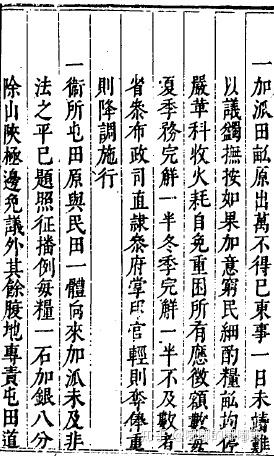 一加派田畝原出萬不得已東事一日未靖難
以議蠲撫按如果加意窮民細酌糧畝均停
嚴革科收火耗自免重困所有應徵額數每
夏季務完解一半冬季完解一半不及數者
省叅布政司直隷叅府掌印官輕則奪俸重
則降調施行
一衛所屯田原與民田一體向來加派未及非
法之平已題照征播例每糧一石加銀八分
除山陝極邊免議外其餘腹地專責屯田道